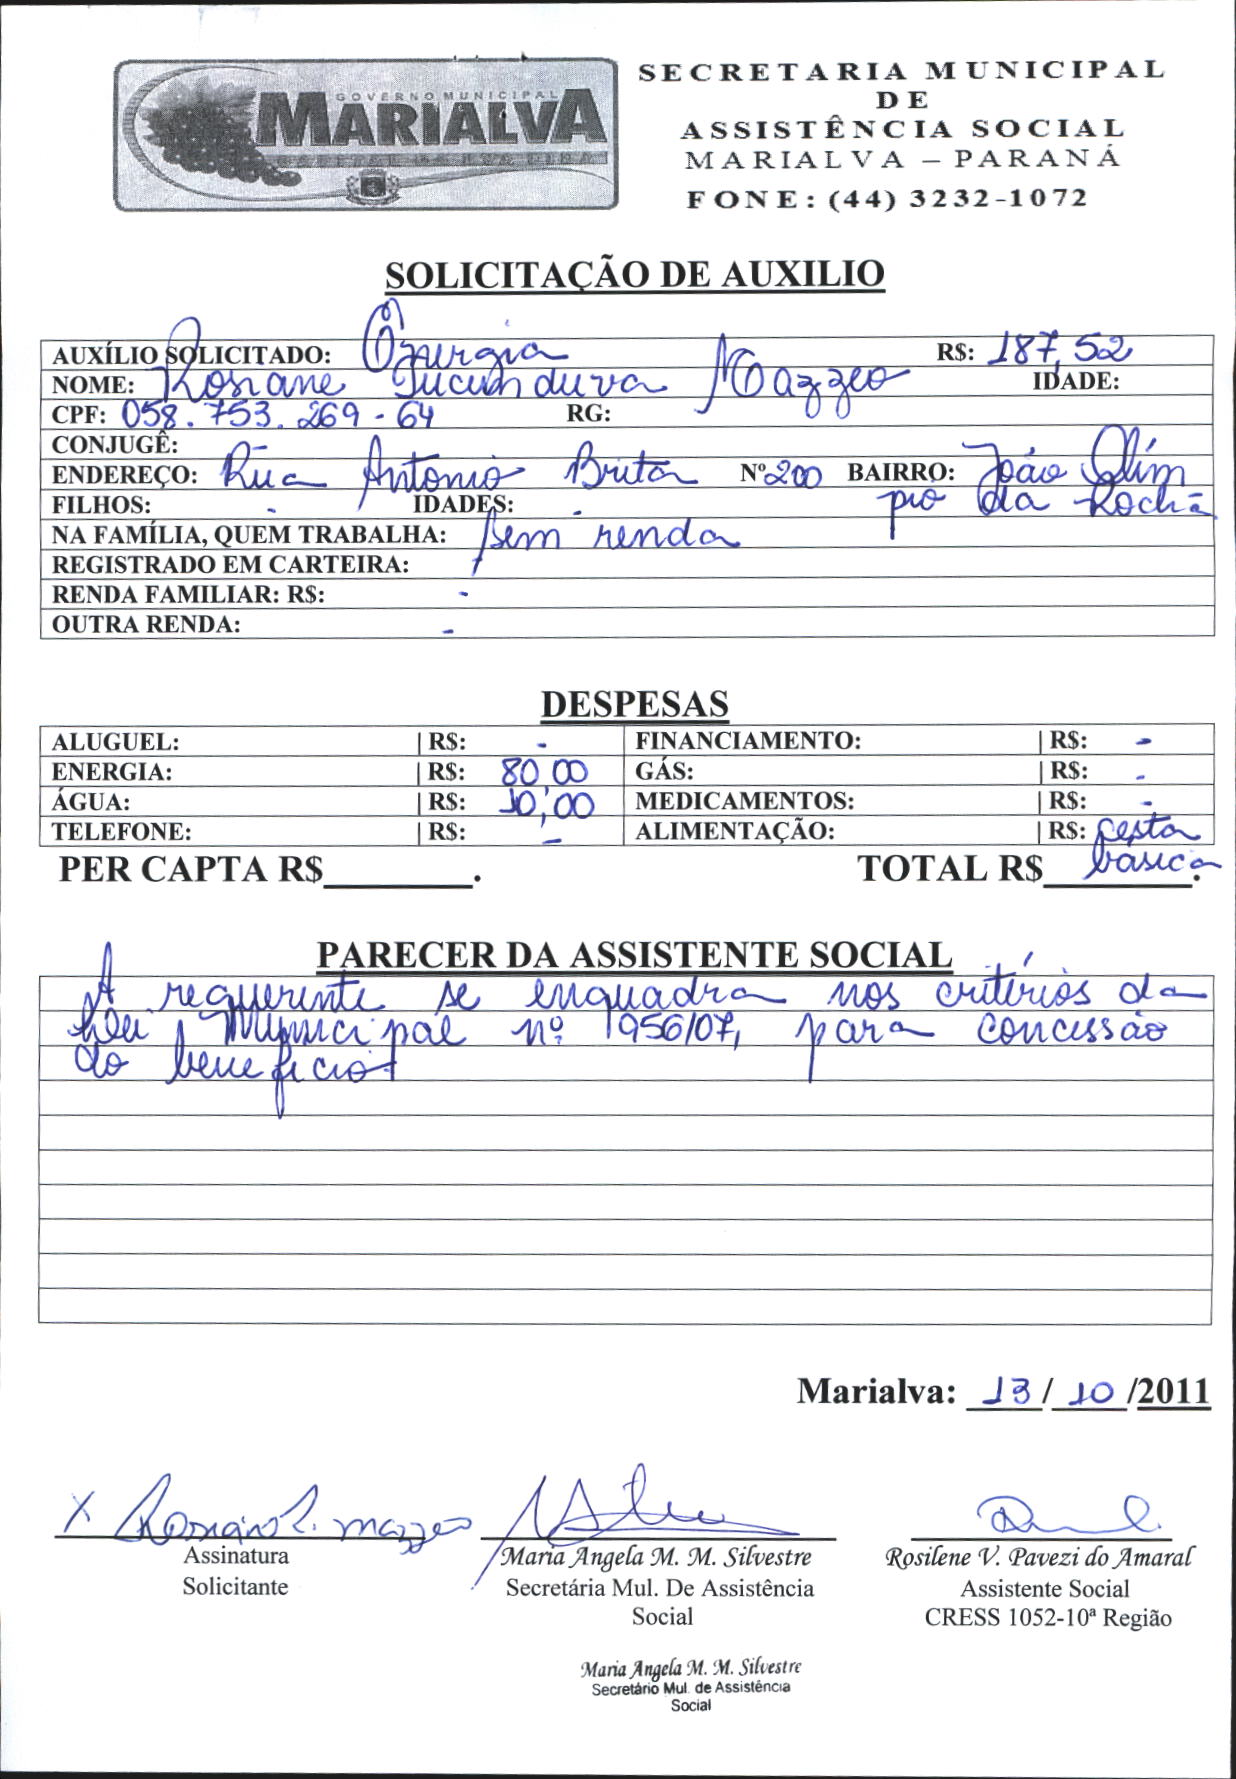 GOVERNO MUNICIPAL
MARIALVA
CAPITAL DA UVA FINA
SECRETARIA MUNICIPAL
DE
ASSISTÊNCIA SOCIAL
MARIALVA – PARANÁ
FONE: (44) 3232-1072
SOLICITAÇÃO DE AUXILIO
AUXÍLIO SOLICITADO: Energia R$: 187,52
NOME: Rosiane Tucunduva Mazzeo IDADE:
CPF: 058.753.269-64 RG:
CONJUGÊ:
ENDEREÇO: Rua Antonio Brita Nº 200 BAIRRO: João Olím
pio da Rocha
FILHOS: - IDADES: -
NA FAMÍLIA, QUEM TRABALHA: sem renda
REGISTRADO EM CARTEIRA:
RENDA FAMILIAR: R$: -
OUTRA RENDA: -
DESPESAS
ALUGUEL: | R$: - FINANCIAMENTO: | R$: -
ENERGIA: | R$: 80,00 GÁS: | R$: -
ÁGUA: | R$: 10,00 MEDICAMENTOS: | R$: -
TELEFONE: | R$: - ALIMENTAÇÃO: | R$: cesta
básica
PER CAPTA R$________. TOTAL R$________.
PARECER DA ASSISTENTE SOCIAL
A requerente se enquadra nos critérios da
Lei Municipal nº 1956/07, para concessão
do benefício.
Marialva: 13/10/2011
X Rosiane T. Mazzeo
Assinatura
Solicitante
Maria Angela M. M. Silvestre
Secretária Mul. De Assistência
Social
Rosilene V. Pavezi do Amaral
Assistente Social
CRESS 1052-10ª Região
Maria Angela M. M. Silvestre
Secretário Mul. de Assistência
Social